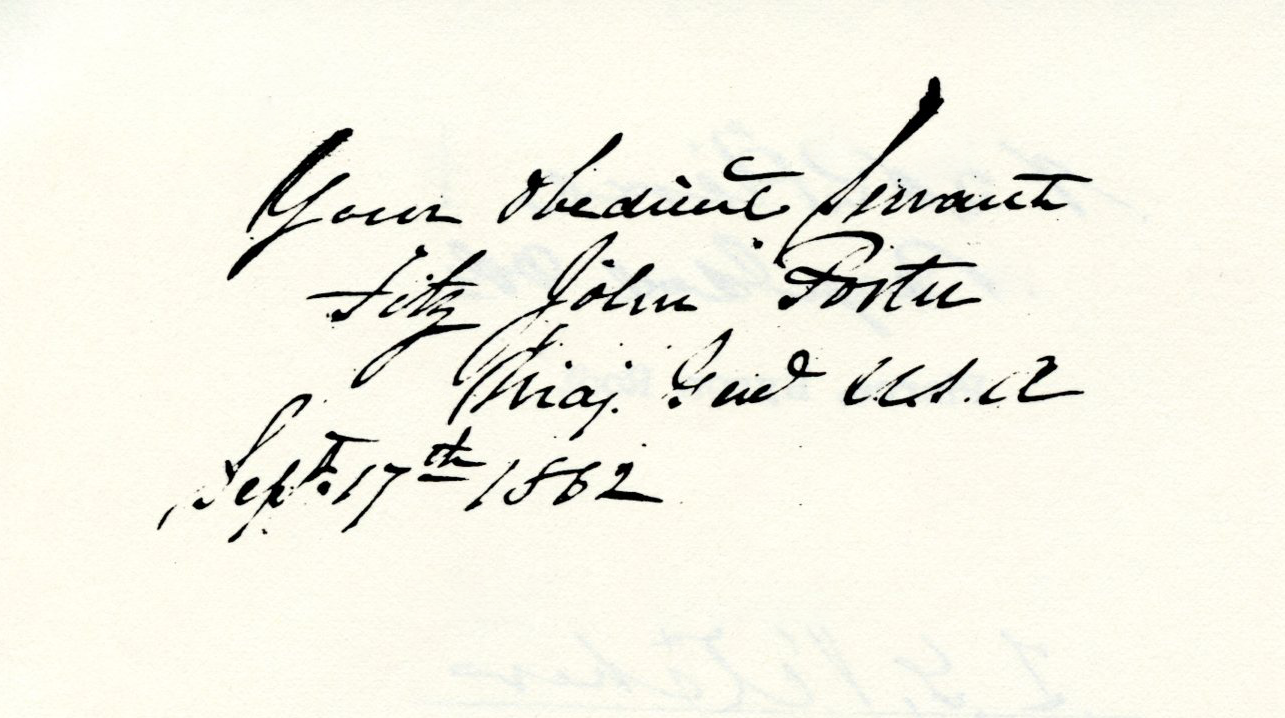 Your obedient Servant
Fitz John Porter
Maj. Genl U.S.A
Sept. 17th 1862